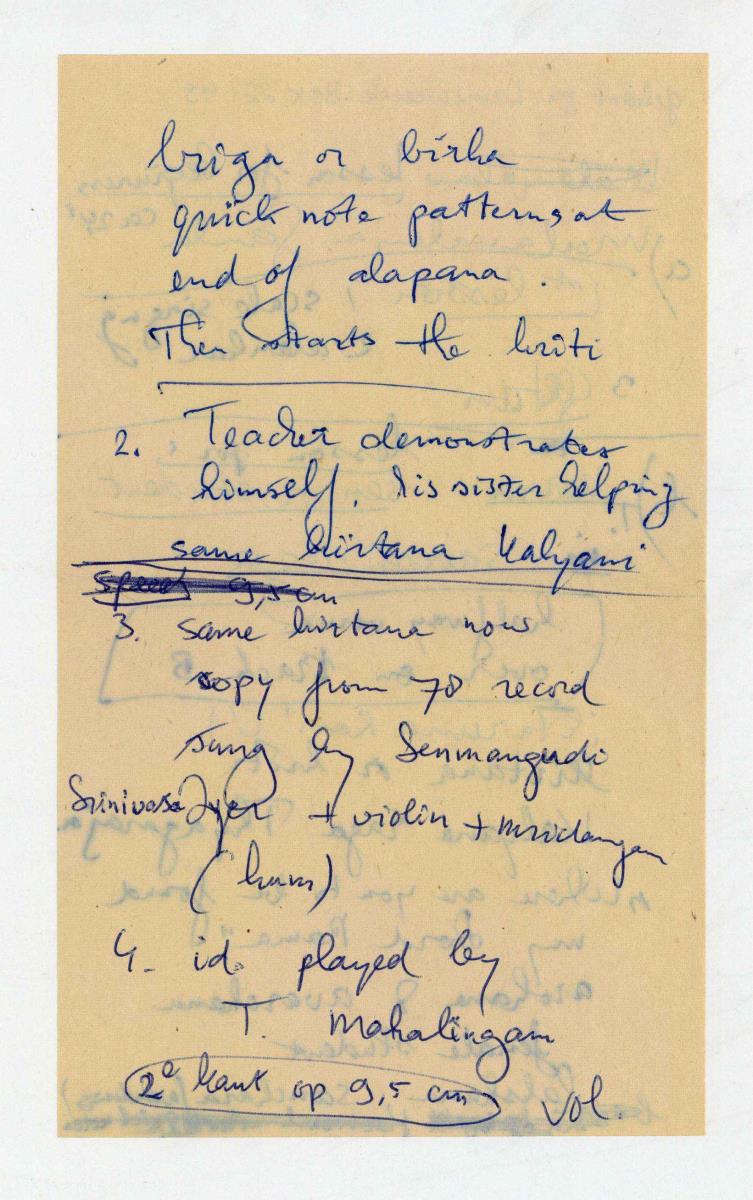 briga or birka
quick note patterns at
end of alapana.
Then starts the kriti
2. Teacher demonstrates
himself, his sister helping
same kirtana Kalyani
speed 9,5 cm
3. same kirtana now
copy from 78 record
sung by Senmangudi
Srinivasa Iyer + violin + mridangam
(hum)
4. id. played by
T. Mahalingam
2e kant op 9,5 cm vol.